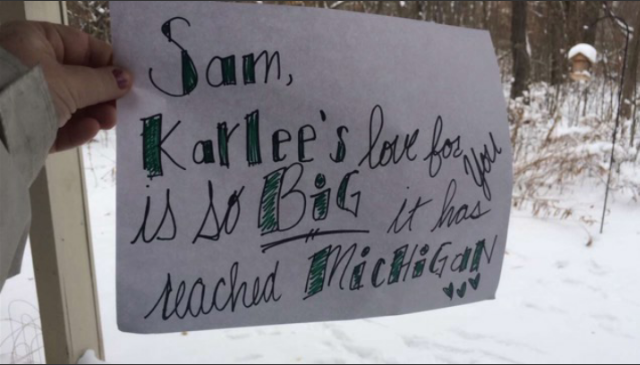 Sam,
Karlee's love for you
is so BiG it has
reached MicHiGaN